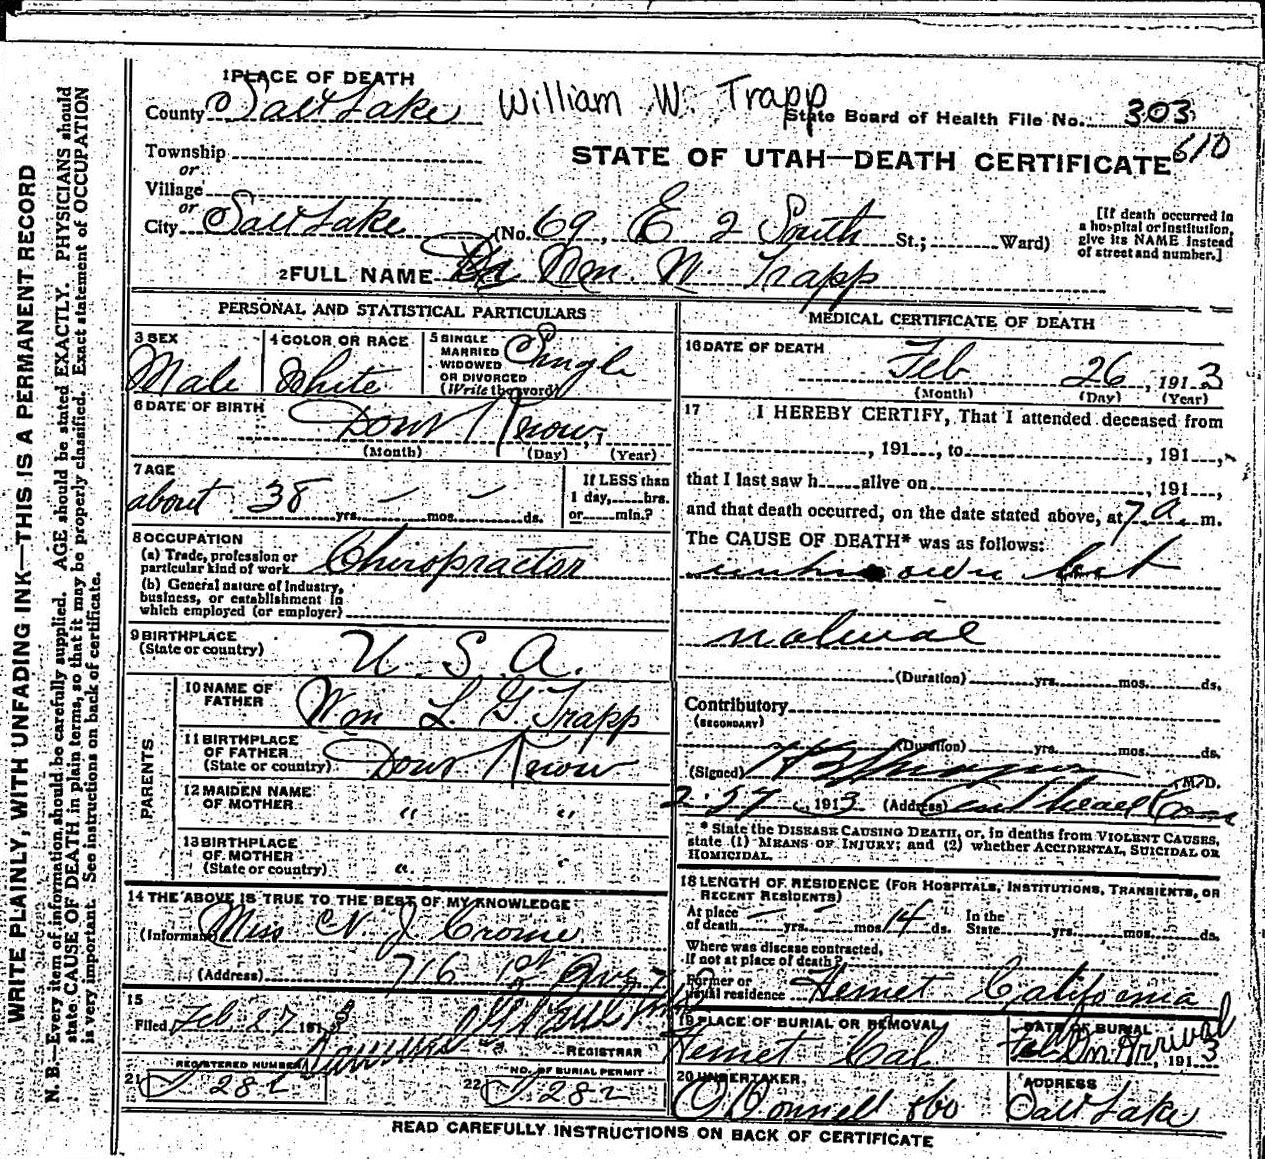 WRITE PLAINLY, WITH UNFADING INK—THIS IS A PERMANENT RECORD
N. B.—Every item of information should be carefully supplied. AGE should be stated EXACTLY. PHYSICIANS should
state CAUSE OF DEATH in plain terms, so that it may be properly classified. Exact statement of OCCUPATION
is very important. See instructions on back of certificate.
1 PLACE OF DEATH
County Salt Lake
William W. Trapp
State Board of Health File No. 303
610
Township
or
Village
or
STATE OF UTAH—DEATH CERTIFICATE
City Salt Lake (No. 69, E 2 South St.; Ward)
[If death occurred in
a hospital or institution,
give its NAME instead
of street and number.]
2 FULL NAME Wm W. Trapp
PERSONAL AND STATISTICAL PARTICULARS
3 SEX
Male
4 COLOR OR RACE
White
5 SINGLE
MARRIED
WIDOWED
OR DIVORCED
(Write the word)
Single
6 DATE OF BIRTH
Dont Know
(Month) (Day) (Year)
7 AGE
about 38 yrs. — mos. — ds.
If LESS than
1 day, hrs.
or min.?
8 OCCUPATION
(a) Trade, profession or
particular kind of work Chiropractor
(b) General nature of Industry,
business, or establishment in
which employed (or employer)
9 BIRTHPLACE
(State or country)
U. S. A.
PARENTS
10 NAME OF
FATHER
Wm L. G Trapp
11 BIRTHPLACE
OF FATHER
(State or country)
Dont Know
12 MAIDEN NAME
OF MOTHER
" "
13 BIRTHPLACE
OF MOTHER
(State or country)
" "
14 THE ABOVE IS TRUE TO THE BEST OF MY KNOWLEDGE
(Informant) Miss N J Crome
(Address) 716 1st Ave
15
Filed Feb 27 1913
REGISTRAR
REGISTERED NUMBER
21 J 282
NO. OF BURIAL PERMIT
22 J 282
MEDICAL CERTIFICATE OF DEATH
16 DATE OF DEATH
Feb 26, 1913
(Month) (Day) (Year)
17 I HEREBY CERTIFY, That I attended deceased from
, 191 , to , 191 ,
that I last saw h alive on , 191 ,
and that death occurred, on the date stated above, at 7 a. m.
The CAUSE OF DEATH* was as follows:
unknown but
natural
(Duration) yrs. mos. ds.
Contributory
(SECONDARY)
(Duration) yrs. mos. ds.
(Signed) M.D.
2-27, 1913 (Address)
* State the DISEASE CAUSING DEATH, or, in deaths from VIOLENT CAUSES,
state (1) MEANS OF INJURY; and (2) whether ACCIDENTAL, SUICIDAL OR
HOMICIDAL.
18 LENGTH OF RESIDENCE (FOR HOSPITALS, INSTITUTIONS, TRANSIENTS, OR
RECENT RESIDENTS)
At place
of death — yrs. — mos. 14 ds.
In the
State yrs. mos. ds.
Where was disease contracted,
If not at place of death?
Former or
usual residence Hemet California
19 PLACE OF BURIAL OR REMOVAL
Hemet Cal
DATE OF BURIAL
On Arrival, 1913
20 UNDERTAKER
O'Donnell & Co
ADDRESS
Salt Lake
READ CAREFULLY INSTRUCTIONS ON BACK OF CERTIFICATE